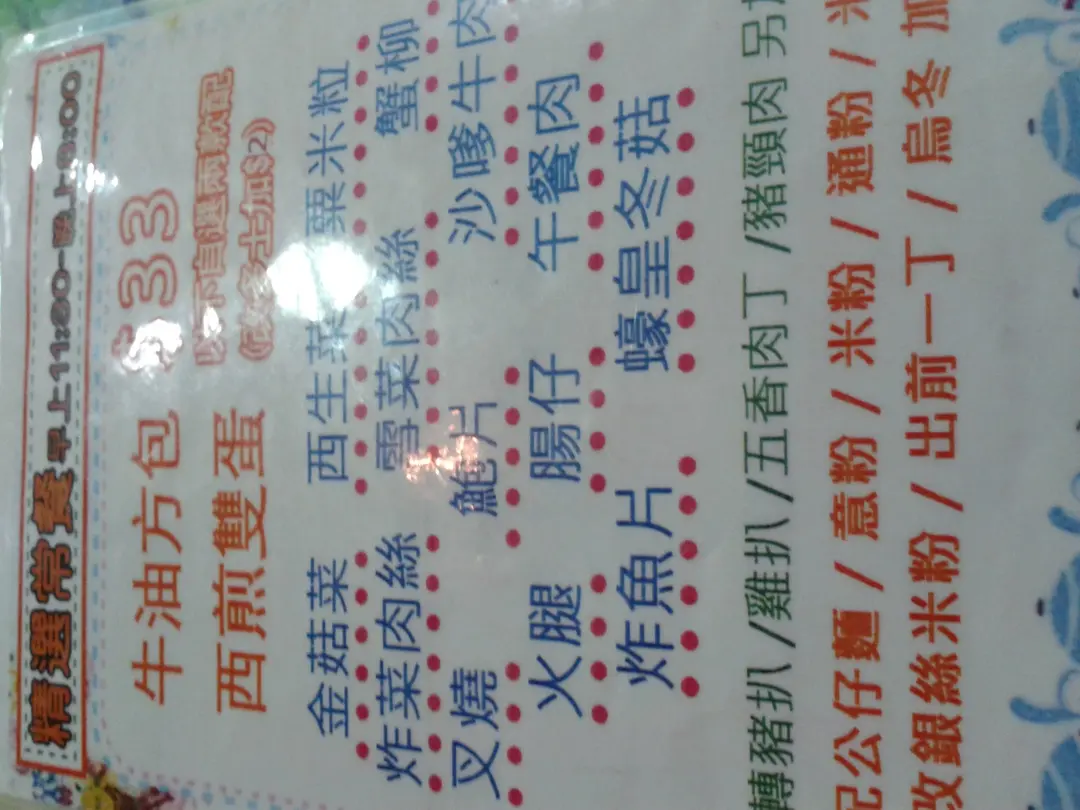 精選常餐 早上11:00-晚上9:00
牛油方包 $33
西煎雙蛋 以下自選兩款配
(改多士加$2)
金菇菜 西生菜 粟米粒
炸菜肉絲 雪菜肉絲 蟹柳
叉燒 鮑片 沙嗲牛肉
火腿 腸仔 午餐肉
炸魚片 蠔皇冬菇
轉豬扒/雞扒/五香肉丁/豬頸肉 另加
配公仔麵/意粉/米粉/通粉/米
改銀絲米粉/出前一丁/烏冬 加